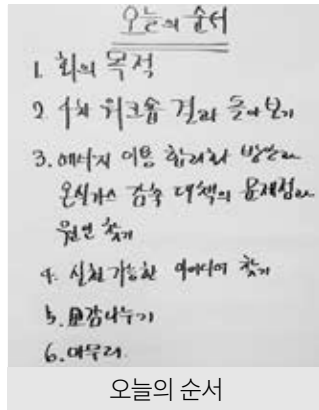 오늘의 순서
1. 회의 목적
2. 4차 워크숍 결과 돌아보기
3. 에너지 이용 합리화 방안과
온실가스 감축 대책의 문제점과
원인 찾기
4. 실천 가능한 아이디어 찾기
5. 소감나누기
6. 마무리
오늘의 순서